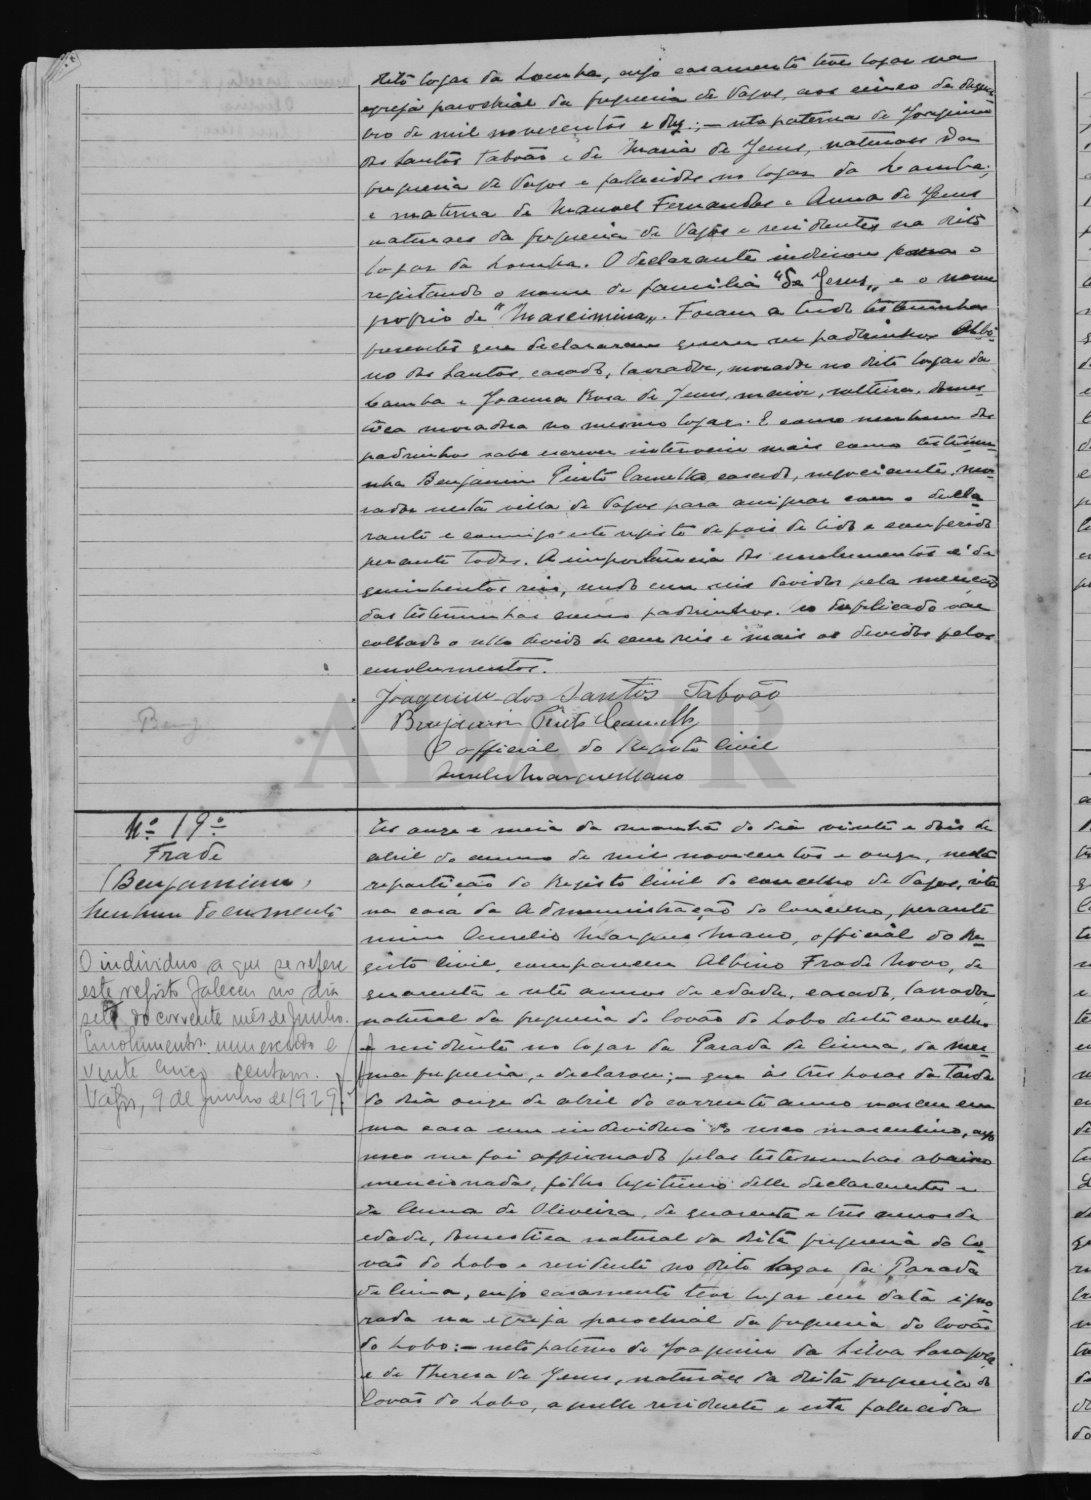 dito logar da Lomba, cujo casamento teve logar na
egreja parochial da freguesia de Vagos, aos cinco de dezem-
bro de mil novecentos e dez; — neta paterna de Joaquim
dos Santos Taboão e de Maria de Jesus, naturaes da
freguesia de Vagos e fallecidos no logar da Lomba;
e materna de Manoel Fernandes e Anna de Jesus
naturaes da freguesia de Vagos e residentes no dito
logar da Lomba. O declarante indicou para o
registando o nome de familia "de Jesus" e o nome
proprio de "Maximina". Foram a tudo testemunhas
presentes que declararam querer ser padrinhos Albi-
no dos Santos, casado, lavrador, morador no dito logar da
Lomba e Joanna Rosa de Jesus, maior, solteira, domes-
tica moradora no mesmo logar. E como nenhum dos
padrinhos sabe escrever interveiu mais como testemu-
nha Benjamin Pinto Camello, casado, negociante, mo-
rador nesta villa de Vagos para assignar com o decla-
rante e commigo este registo depois de lido e conferido
perante todos. A importancia dos emolumentos é de
quinhentos reis, sendo cem reis devidos pela menção
das testemunhas como padrinhos. No duplicado vae
collado o sello devido de cem reis e mais os devidos pelos
emolumentos.
Joaquim dos Santos Taboão
Benjamin Pinto Camello
O official do Registo Civil
Aurelio Marques Mano
Benj
ADAVR
Nº 19º
Frade
(Benjamim)
Nenhum documento
O individuo a que se refere
este registo faleceu no dia
sete do corrente mês de Junho.
Emolumentos: um escudo e
vinte cinco centavos.
Vagos, 9 de junho de 1929.
Ás onze e meia da manhã do dia vinte e dois de
abril do anno de mil novecentos e onze, nesta
repartição do Registo Civil do concelho de Vagos, sita
na casa da Administração do Concelho, perante
mim Aurelio Marques Mano, official do Re-
gisto Civil, compareceu Albino Frade Novo, de
quarenta e sete annos de edade, casado, lavrador,
natural da freguesia do Covão do Lobo deste concelho
e residente no logar da Parada de Cima, da mes-
ma freguesia, e declarou; — que ás tres horas da tarde
do dia onze de abril do corrente anno nasceu em
sua casa um individuo do sexo masculino, cujo
sexo me foi affirmado pelas testemunhas abaixo
mencionadas, filho legitimo delle declarante e
de Anna de Oliveira, de quarenta e tres annos de
edade, domestica natural da dita freguesia do Co-
vão do Lobo e residente no dito logar da Parada
de Cima, cujo casamento teve logar em data igno-
rada na egreja parochial da freguesia do Covão
do Lobo: — neto paterno de Joaquim da Silva
e de Thereza de Jesus, naturaes da dita freguesia do
Covão do Lobo, aquelle residente e esta fallecida